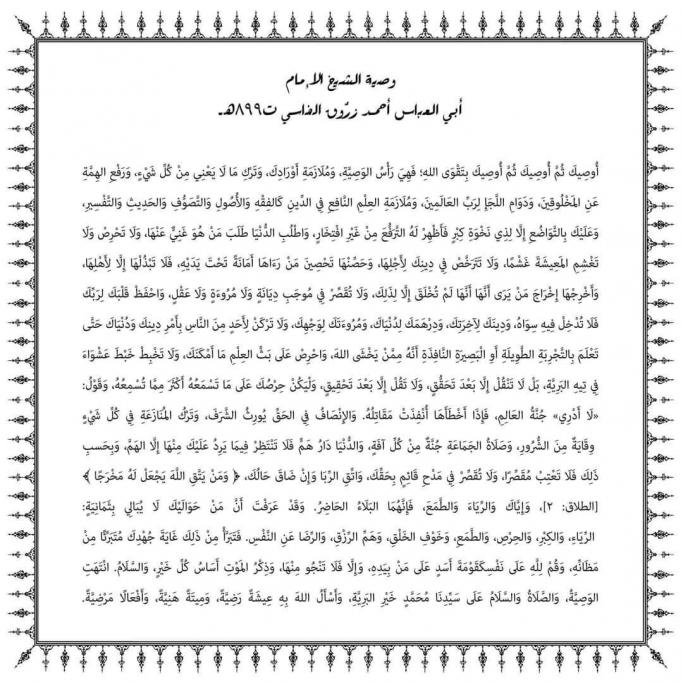 وصية الشيخ الإمام
أبي العباس أحمد زرّوق الفاسي ت٨٩٩هـ
أُوصِيكَ ثُمَّ أُوصِيكَ ثُمَّ أُوصِيكَ بِتَقْوَى اللهِ؛ فَهِيَ رَأْسُ الوَصِيَّةِ، وَمُلَازَمَةِ أَوْرَادِكَ، وَتَرْكِ مَا لَا يَعْنِي مِنْ كُلِّ شَيْءٍ، وَرَفْعِ الهِمَّةِ
عَنِ المَخْلُوقِينَ، وَدَوَامِ اللَّجَإِ لِرَبِّ العَالَمِينَ، وَمُلَازَمَةِ العِلْمِ النَّافِعِ فِي الدِّينِ كَالفِقْهِ وَالأُصُولِ وَالتَّصَوُّفِ وَالحَدِيثِ وَالتَّفْسِيرِ،
وَعَلَيْكَ بِالتَّوَاضُعِ إِلَّا لِذِي نَخْوَةِ كِبْرٍ فَأَظْهِرْ لَهُ التَّرَفُّعَ مِنْ غَيْرِ افْتِخَارٍ، وَاطْلُبِ الدُّنْيَا طَلَبَ مَنْ هُوَ غَنِيٌّ عَنْهَا، وَلَا تَحْرِصْ وَلَا
تَغْشِمِ المَعِيشَةَ غَشْمًا، وَلَا تَتَرَخَّصْ فِي دِينِكَ لِأَجْلِهَا، وَحَصِّنْهَا تَحْصِينَ مَنْ رَءَاهَا أَمَانَةً تَحْتَ يَدَيْهِ، فَلَا تَبْذُلْهَا إِلَّا لِأَهْلِهَا،
وَأَخْرِجْهَا إِخْرَاجَ مَنْ يَرَى أَنَّهَا أَنَّهَا لَمْ تُخْلَقْ إِلَّا لِذَلِكَ، وَلَا تُقَصِّرْ فِي مُوجَبِ دِيَانَةٍ وَلَا مُرُوءَةٍ وَلَا عَقْلٍ، وَاحْفَظْ قَلْبَكَ لِرَبِّكَ
فَلَا تُدْخِلْ فِيهِ سِوَاهُ، وَدِينَكَ لِآخِرَتِكَ، وَدِرْهَمَكَ لِدُنْيَاكَ، وَمُرُوءَتَكَ لِوَجْهِكَ، وَلَا تَرْكَنْ لِأَحَدٍ مِنَ النَّاسِ بِأَمْرِ دِينِكَ وَدُنْيَاكَ حَتَّى
تَعْلَمَ بِالتَّجْرِبَةِ الطَّوِيلَةِ أَوِ البَصِيرَةِ النَّافِذَةِ أَنَّهُ مِمَّنْ يَخْشَى اللهَ، وَاحْرِصْ عَلَى بَثِّ العِلْمِ مَا أَمْكَنَكَ، وَلَا تَخْبِطْ خَبْطَ عَشْوَاءَ
فِي تِيهِ البَرِيَّةِ، بَلْ لَا تَنْقُلْ إِلَّا بَعْدَ تَحَقُّقٍ، وَلَا تَقُلْ إِلَّا بَعْدَ تَحْقِيقٍ، وَلْيَكُنْ حِرْصُكَ عَلَى مَا تَسْمَعُهُ أَكْثَرَ مِمَّا تُسْمِعُهُ، وَقَوْلُ:
«لَا أَدْرِي» جُنَّةُ العَالِمِ، فَإِذَا أَخْطَأَهَا أُنْفِذَتْ مَقَاتِلُهُ. وَالإِنْصَافُ فِي الحَقِّ يُورِثُ الشَّرَفَ، وَتَرْكُ المُنَازَعَةِ فِي كُلِّ شَيْءٍ
وِقَايَةٌ مِنَ الشُّرُورِ، وَصَلَاةُ الجَمَاعَةِ جُنَّةٌ مِنْ كُلِّ آفَةٍ، وَالدُّنْيَا دَارُ هَمٍّ فَلَا تَنْتَظِرْ فِيمَا يَرِدُ عَلَيْكَ مِنْهَا إِلَّا الهَمَّ، وَبِحَسبِ
ذَلِكَ فَلَا تَعْتِبْ مُقَصِّرًا، وَلَا تُقَصِّرْ فِي مَدْحِ قَائِمٍ بِحَقِّكَ، وَاتَّقِ الرِّبَا وَإِنْ ضَاقَ حَالُكَ، ﴿ وَمَنْ يَتَّقِ اللَّهَ يَجْعَلْ لَهُ مَخْرَجًا ﴾
[الطلاق: ٢]، وَإِيَّاكَ وَالرِّيَاءَ وَالطَّمَعَ، فَإِنَّهُمَا البَلَاءُ الحَاضِرُ. وَقَدْ عَرَفْتَ أَنَّ مَنْ حَوَالَيْكَ لَا يُبَالِي بِثَمَانِيَةٍ:
الرِّيَاءِ، وَالكِبْرِ، وَالحِرْصِ، وَالطَّمَعِ، وَخَوْفِ الخَلْقِ، وَهَمِّ الرِّزْقِ، وَالرِّضَا عَنِ النَّفْسِ. فَتَبَرَّأْ مِنْ ذَلِكَ غَايَةَ جُهْدِكَ مُتَبَرِّئًا مِنْ
مَظَانِّهِ، وَقُمْ لِلَّهِ عَلَى نَفْسِكَقَوْمَةَ أَسَدٍ عَلَى مَنْ بِيَدِهِ، وَإِلَّا فَلَا تَنْجُو مِنْهَا، وَذِكْرُ المَوْتِ أَسَاسُ كُلِّ خَيْرٍ، وَالسَّلَامُ. انْتَهَتِ
الوَصِيَّةُ، وَالصَّلَاةُ وَالسَّلَامُ عَلَى سَيِّدِنَا مُحَمَّدٍ خَيْرِ البَرِيَّةِ، وَأَسْأَلُ اللهَ بِهِ عِيشَةً رَضِيَّةً، وَمِيتَةً هَنِيَّةً، وَأَفْعَالًا مَرْضِيَّةً.